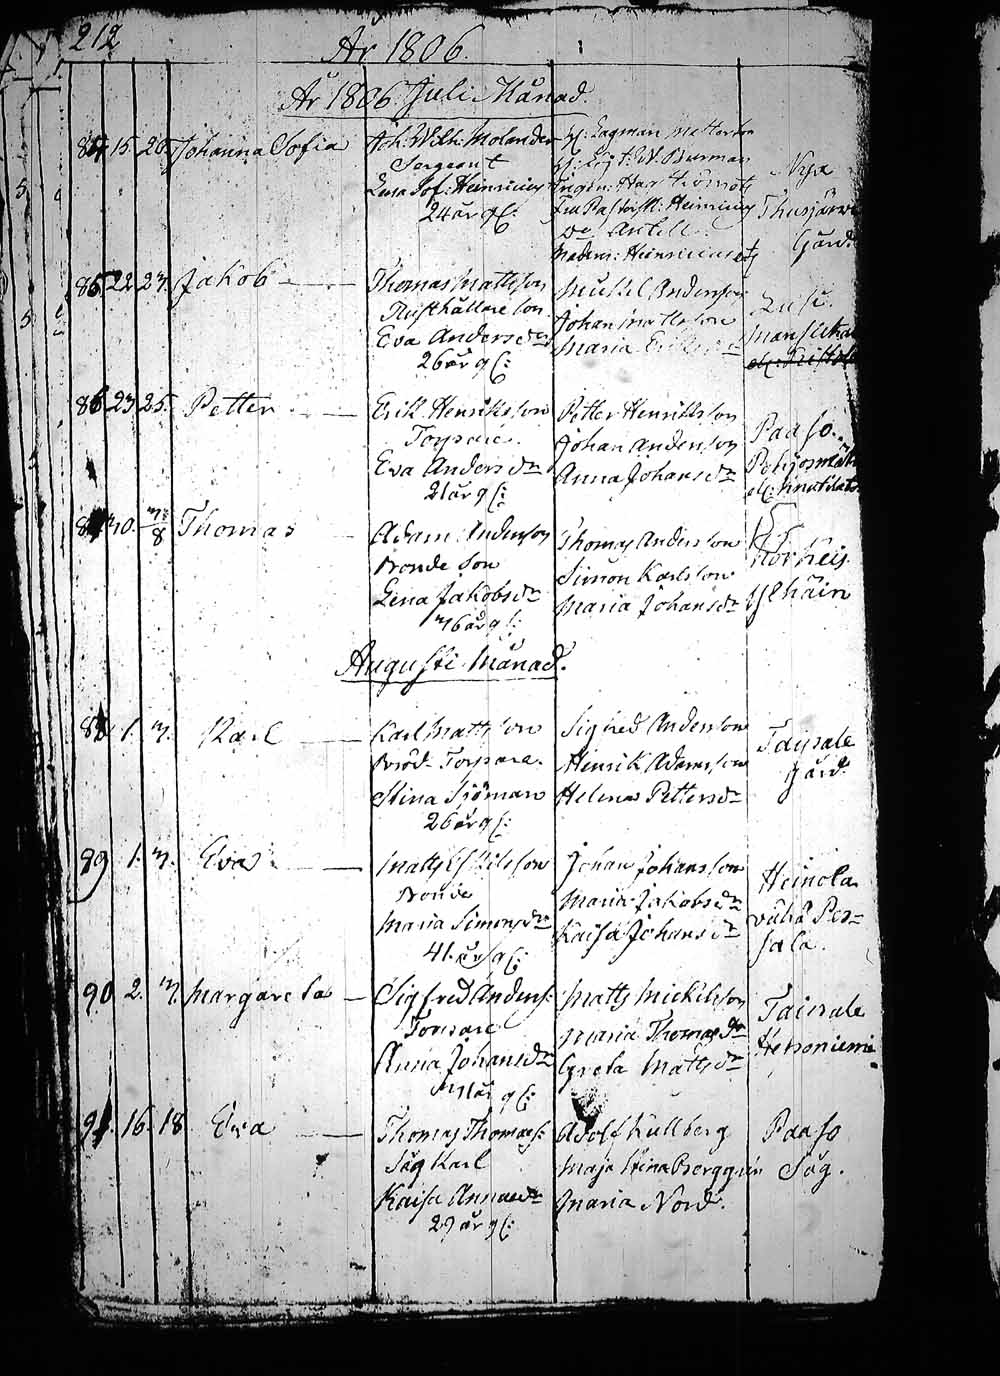 212
År 1806.
År 1806 Juli Månad.
84 15. 20. Johanna Sofia
Joh: Wilh: Molander
Sergeant
Lena Sof: Heinricius
24 år gl:
H: Lagman
H: W. Burman
Heinricius
Antell
Madem: Heinricius
Nya
Thusjärvi
Gård.
85 22 27. Jakob
Thomas Mattsson
Rusthållare Son
Eva Andersdr
26 år gl:
Mickel Andersson
Johan Mattsson
Maria
86 23 25. Petter
Erik Henriksson
Torpare.
Eva Andersdr
21 år gl:
Petter Henriksson
Johan Andersson
Anna Johansdr
Paaso.
87 30. 3/8 Thomas
Adam Andersson
Bonde Son
Lena Jakobsdr
36 år gl:
Thomas Andersson
Simon Karlsson
Maria Johansdr
Ylhäin
Augusti Månad.
88 1. 3. Karl
Karl Mattsson
Torpare.
Stina Sjöman
26 år gl:
Sigfred Andersson
Henrik Adamsson
Helena Pettersdr
Taipale
gård.
89 1. 3. Eva
Matts Eskilsson
Bonde
Maria Simonsdr
41. år gl:
Johan Johansson
Maria Jakobsdr
Kaisa Johansdr
Heinola
vähä Per-
sala.
90 2. 3. Margareta
Sigfred Anders:
Torpare
Anna Johansdr
31 år gl:
Matts Mickelsson
Maria Thomasdr
Greta Mattsdr
Taipale
Hevoniemi
91. 16. 18. Eva
Thomas Thomass:
Såg Karl
Kaisa
29 år gl:
Adolf Kullberg
Maja Stina Berggrén
Maria Nord.
Paaso
Såg.